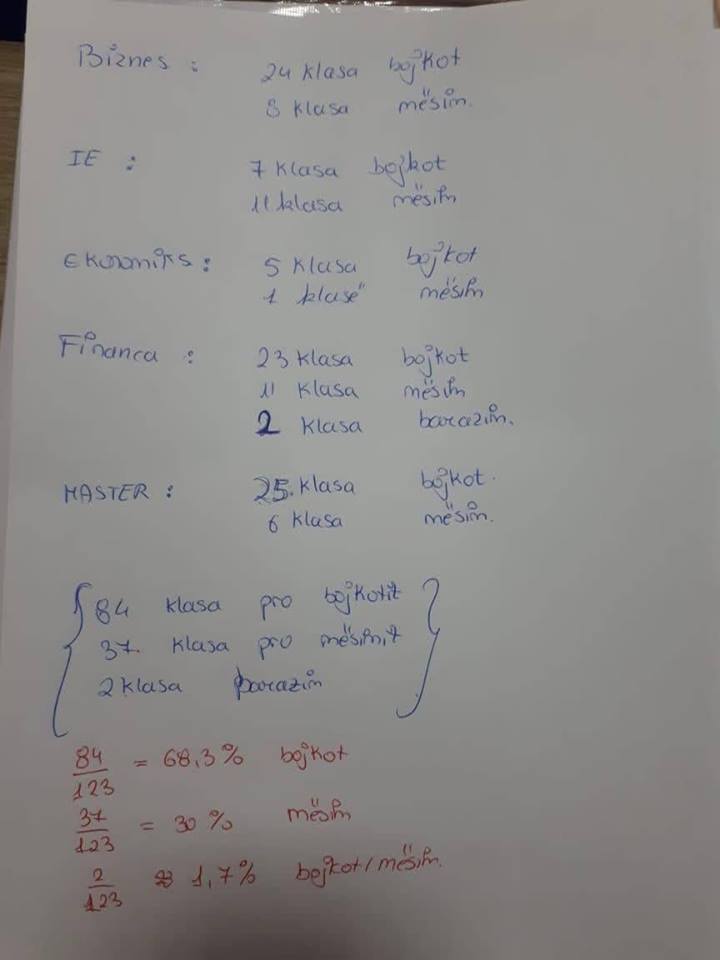 Biznes : 24 klasa bojkot
8 klasa mësim.
IE : 7 klasa bojkot
11 klasa mësim
Ekonomiks : 5 klasa bojkot
1 klasë mësim
Financa : 23 klasa bojkot
11 klasa mësim
2 klasa barazim.
MASTER : 25. klasa bojkot.
6 klasa mësim.
84 klasa pro bojkotit
37. klasa pro mësimit
2 klasa barazim
84/123 = 68,3% bojkot
37/123 = 30% mësim
2/123 ≈ 1,7% bojkot/mësim.